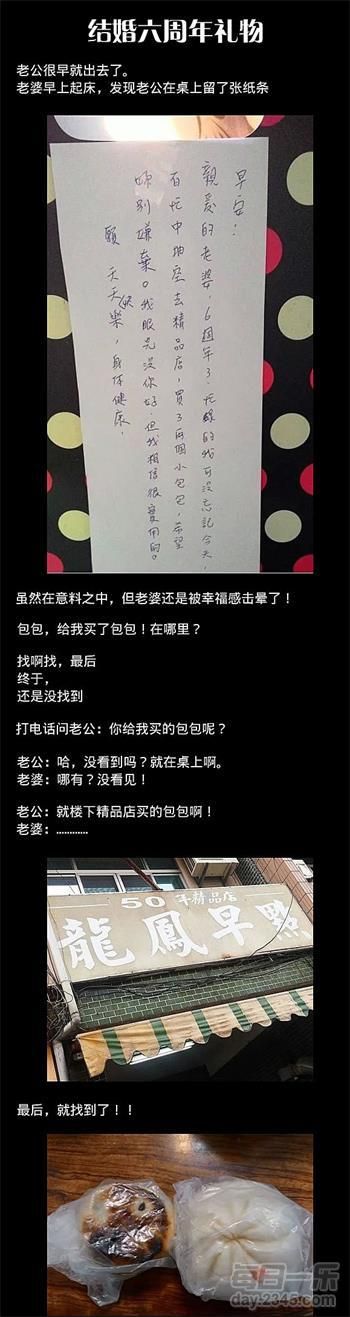 结婚六周年礼物
老公很早就出去了。
老婆早上起床，发现老公在桌上留了张纸条
早安！
親爱的老婆，6週年了，忙碌的我可没忘記今天，
百忙中抽空去精品店，買了兩個小包包，希望
妳别嫌棄。我眼光没你好，但我相信很實用的。
願
天天快樂，身体健康，
虽然在意料之中，但老婆还是被幸福感击晕了！
包包，给我买了包包！在哪里？
找啊找，最后
终于，
还是没找到
打电话问老公：你给我买的包包呢？
老公：哈，没看到吗？就在桌上啊。
老婆：哪有？没看见！
老公：就楼下精品店买的包包啊！
老婆：…………
50年精品店
龍鳳早點
最后，就找到了！！
每日一乐
day.2345.com